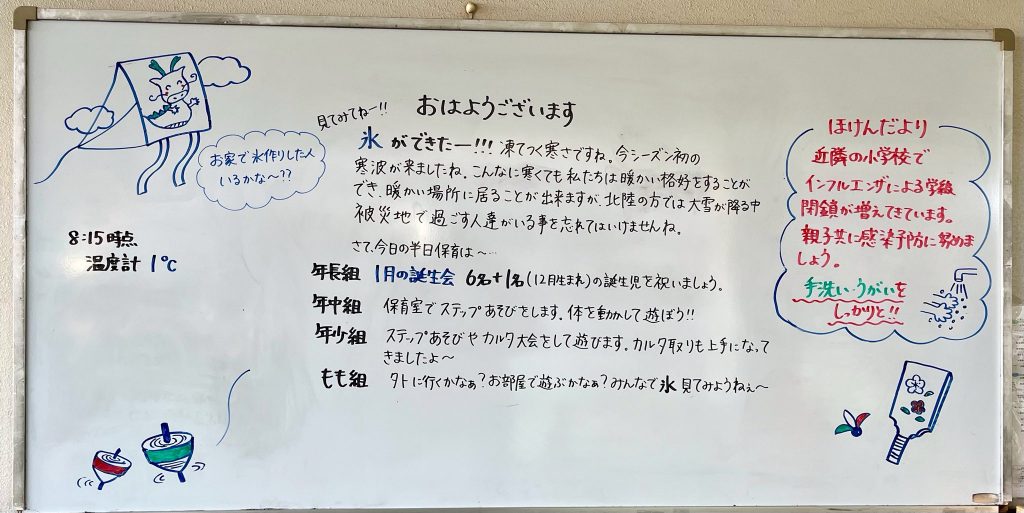 おはようございます
見てみてねー!!
氷ができたー!!! 凍てつく寒さですね。今シーズン初の
寒波が来ましたね。こんなに寒くても私たちは暖かい格好をすることが
でき、暖かい場所に居ることが出来ますが、北陸の方では大雪が降る中
被災地で過ごす人達がいる事を忘れてはいけませんね。
さて、今日の半日保育は〜…
年長組 1月の誕生会 6名+1名(12月生まれ)の誕生児を祝いましょう。
年中組 保育室でステップあそびをします。体を動かして遊ぼう!!
年少組 ステップあそびやカルタ大会をして遊びます。カルタ取りも上手になって
きましたよ〜
もも組 外に行くかなぁ?お部屋で遊ぶかなぁ?みんなで氷見てみようねぇ〜
お家で氷作りした人
いるかな〜??
8:15時点
温度計 1℃
ほけんだより
近隣の小学校で
インフルエンザによる学級
閉鎖が増えてきています。
親子共に感染予防に努めま
しょう。
手洗い・うがいを
しっかりと!!